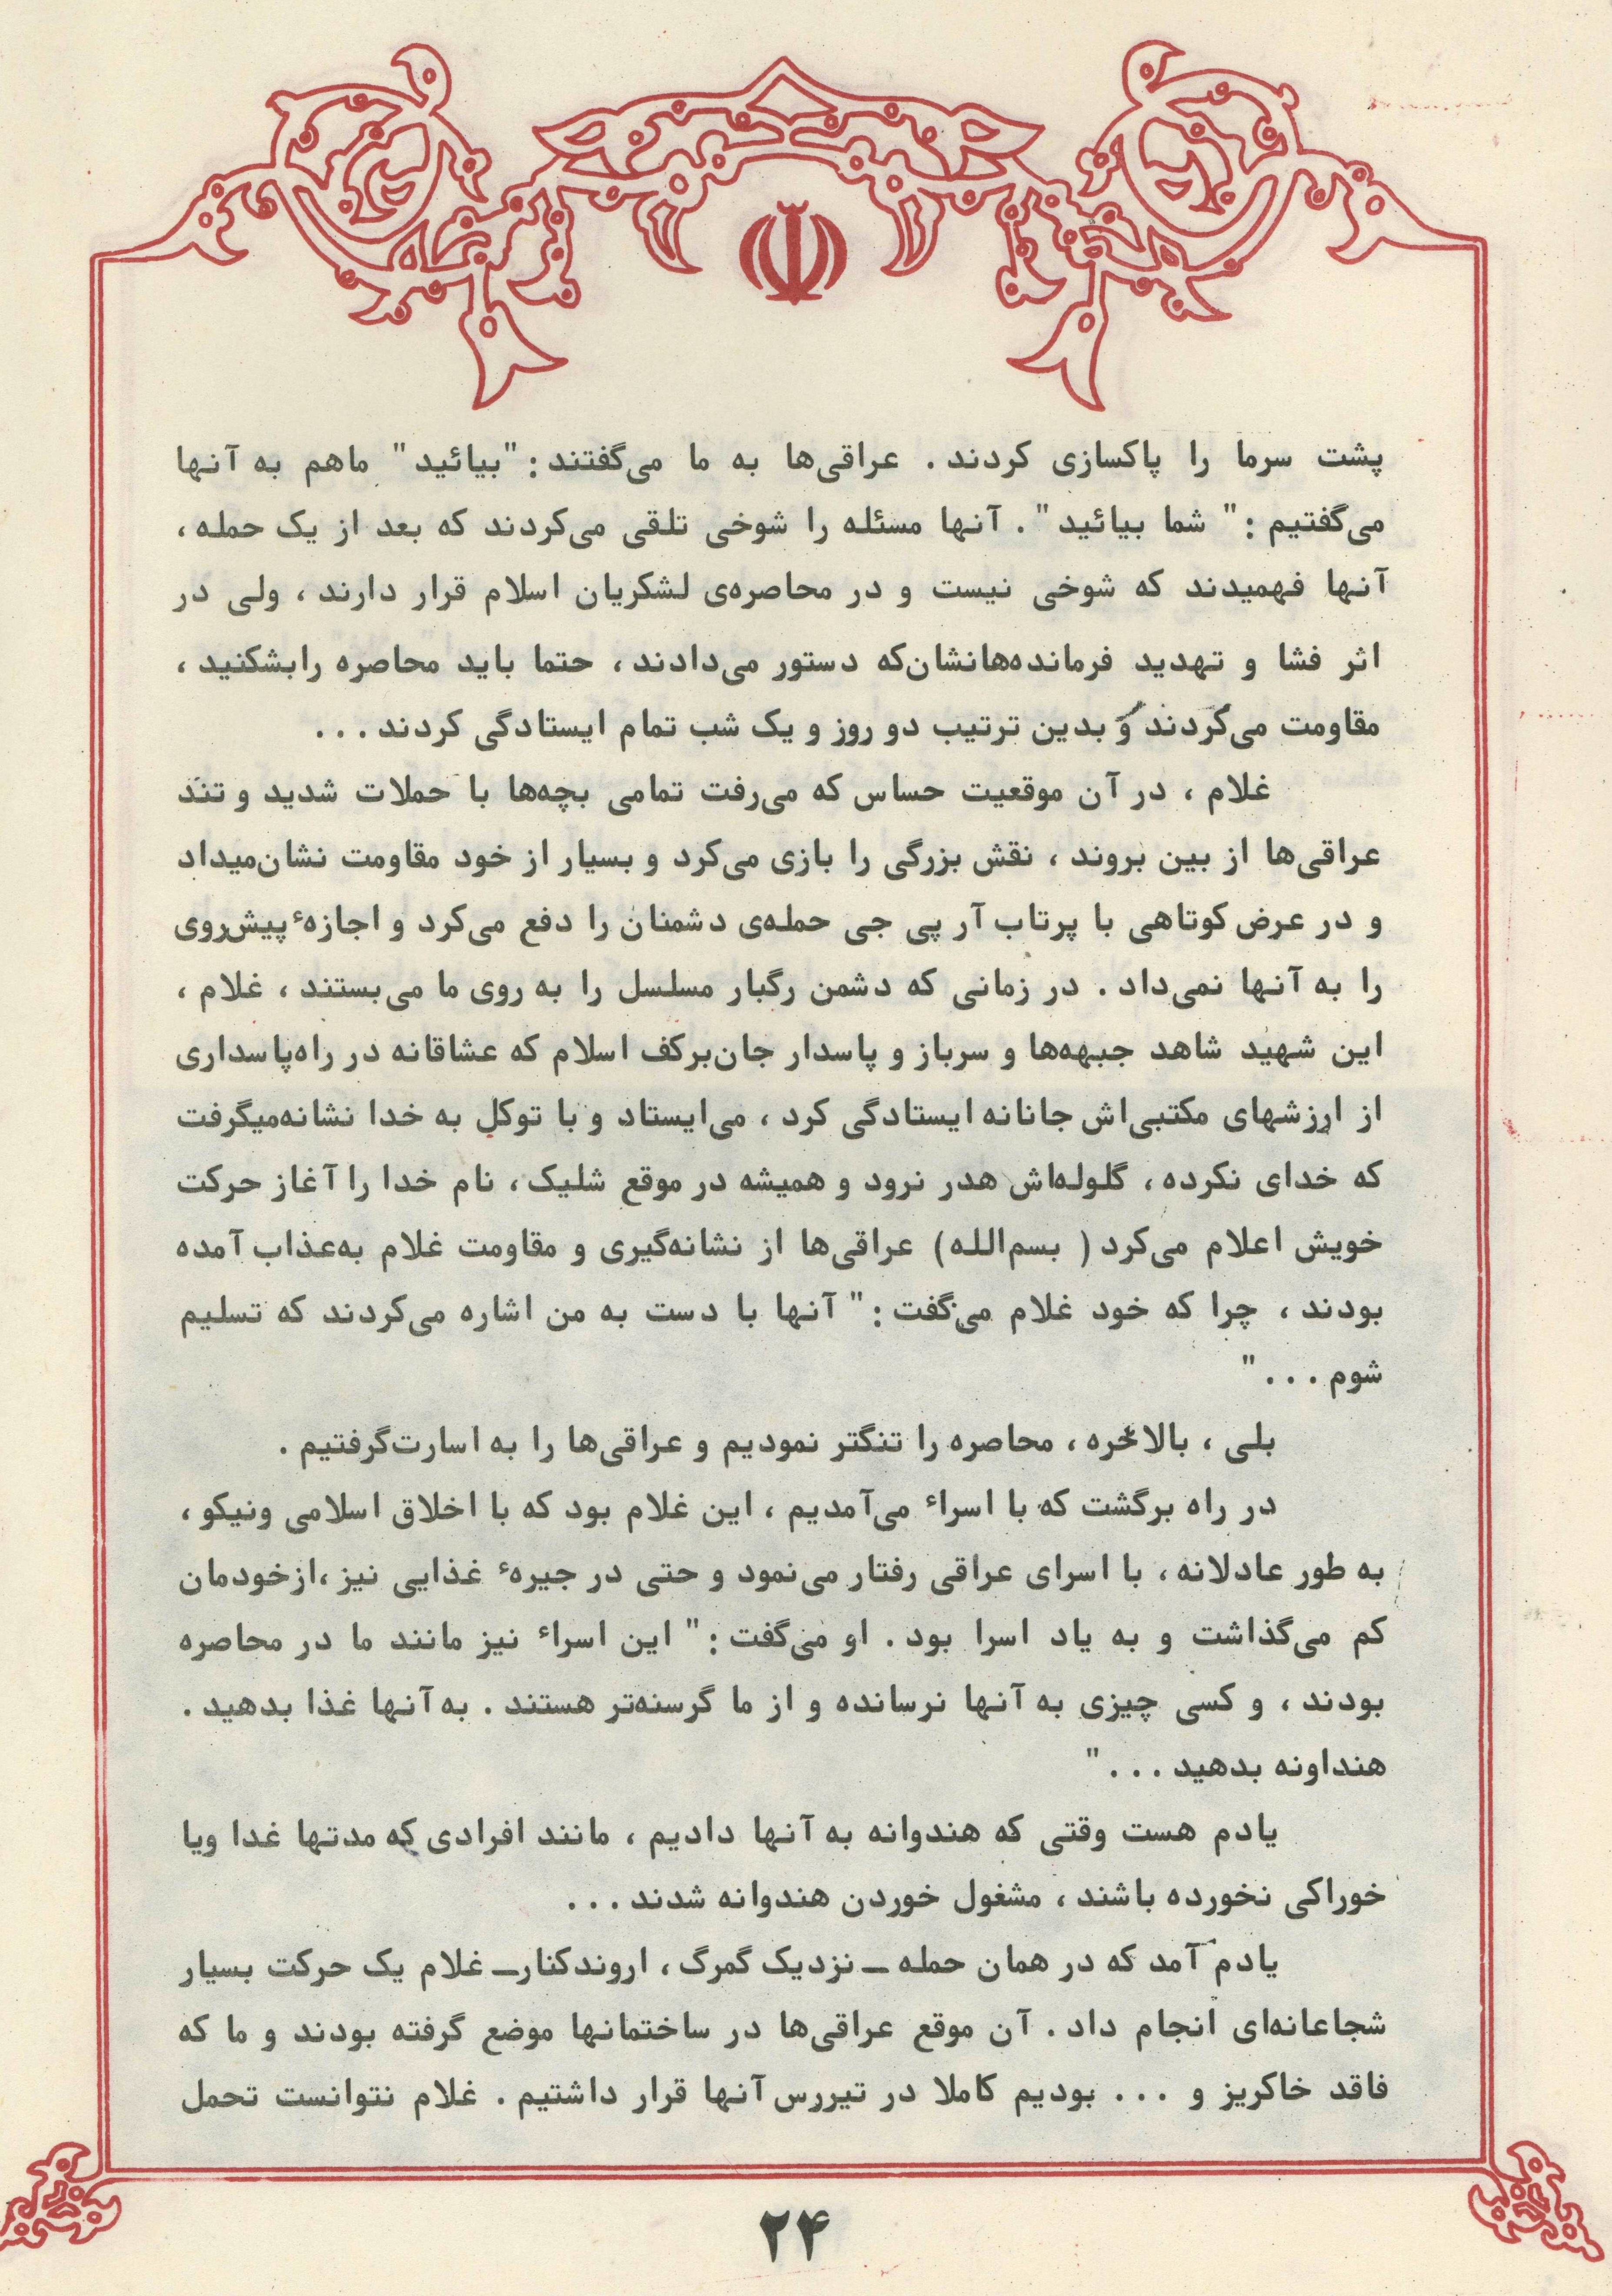 پشت سرما را پاکسازی کردند . عراقی‌ها به ما می‌گفتند : "بیائید" ماهم به آنها
می‌گفتیم : " شما بیائید" . آنها مسئله را شوخی تلقی می‌کردند که بعد از یک حمله ،
آنها فهمیدند که شوخی نیست و در محاصره‌ی لشکریان اسلام قرار دارند ، ولی در
اثر فشا و تهدید فرمانده‌هانشان‌که دستور می‌دادند ، حتما باید محاصره رابشکنید ،
مقاومت می‌کردند و بدین ترتیب دو روز و یک شب تمام ایستادگی کردند . . .
غلام ، در آن موقعیت حساس که می‌رفت تمامی بچه‌ها با حملات شدید و تند
عراقی‌ها از بین بروند ، نقش بزرگی را بازی می‌کرد و بسیار از خود مقاومت نشان‌میداد
و در عرض کوتاهی با پرتاب آر پی جی حمله‌ی دشمنان را دفع می‌کرد و اجازهٔ پیش‌روی
را به آنها نمی‌داد . در زمانی که دشمن رگبار مسلسل را به روی ما می‌بستند ، غلام ،
این شهید شاهد جبهه‌ها و سرباز و پاسدار جان‌برکف اسلام که عشاقانه در راه‌پاسداری
از ارزشهای مکتبی‌اش جانانه ایستادگی کرد ، می‌ایستاد و با توکل به خدا نشانه‌میگرفت
که خدای نکرده ، گلوله‌اش هدر نرود و همیشه در موقع شلیک ، نام خدا را آغاز حرکت
خویش اعلام می‌کرد ( بسم‌الله ) عراقی‌ها از نشانه‌گیری و مقاومت غلام به‌عذاب آمده
بودند ، چرا که خود غلام می‌گفت : " آنها با دست به من اشاره می‌کردند که تسلیم
شوم . . . "
بلی ، بالاخره ، محاصره را تنگتر نمودیم و عراقی‌ها را به اسارت‌گرفتیم .
در راه برگشت که با اسراء می‌آمدیم ، این غلام بود که با اخلاق اسلامی ونیکو ،
به طور عادلانه ، با اسرای عراقی رفتار می‌نمود و حتی در جیرهٔ غذایی نیز ،ازخودمان
کم می‌گذاشت و به یاد اسرا بود . او می‌گفت : " این اسراء نیز مانند ما در محاصره
بودند ، و کسی چیزی به آنها نرسانده و از ما گرسنه‌تر هستند . به آنها غذا بدهید .
هنداونه بدهید . . . "
یادم هست وقتی که هندوانه به آنها دادیم ، مانند افرادی که مدتها غدا ویا
خوراکی نخورده باشند ، مشغول خوردن هندوانه شدند . . .
یادم آمد که در همان حمله ـ نزدیک گمرگ ، اروندکنارـ غلام یک حرکت بسیار
شجاعانه‌ای انجام داد . آن موقع عراقی‌ها در ساختمانها موضع گرفته بودند و ما که
فاقد خاکریز و . . . بودیم کاملا در تیررس آنها قرار داشتیم . غلام نتوانست تحمل
۲۴